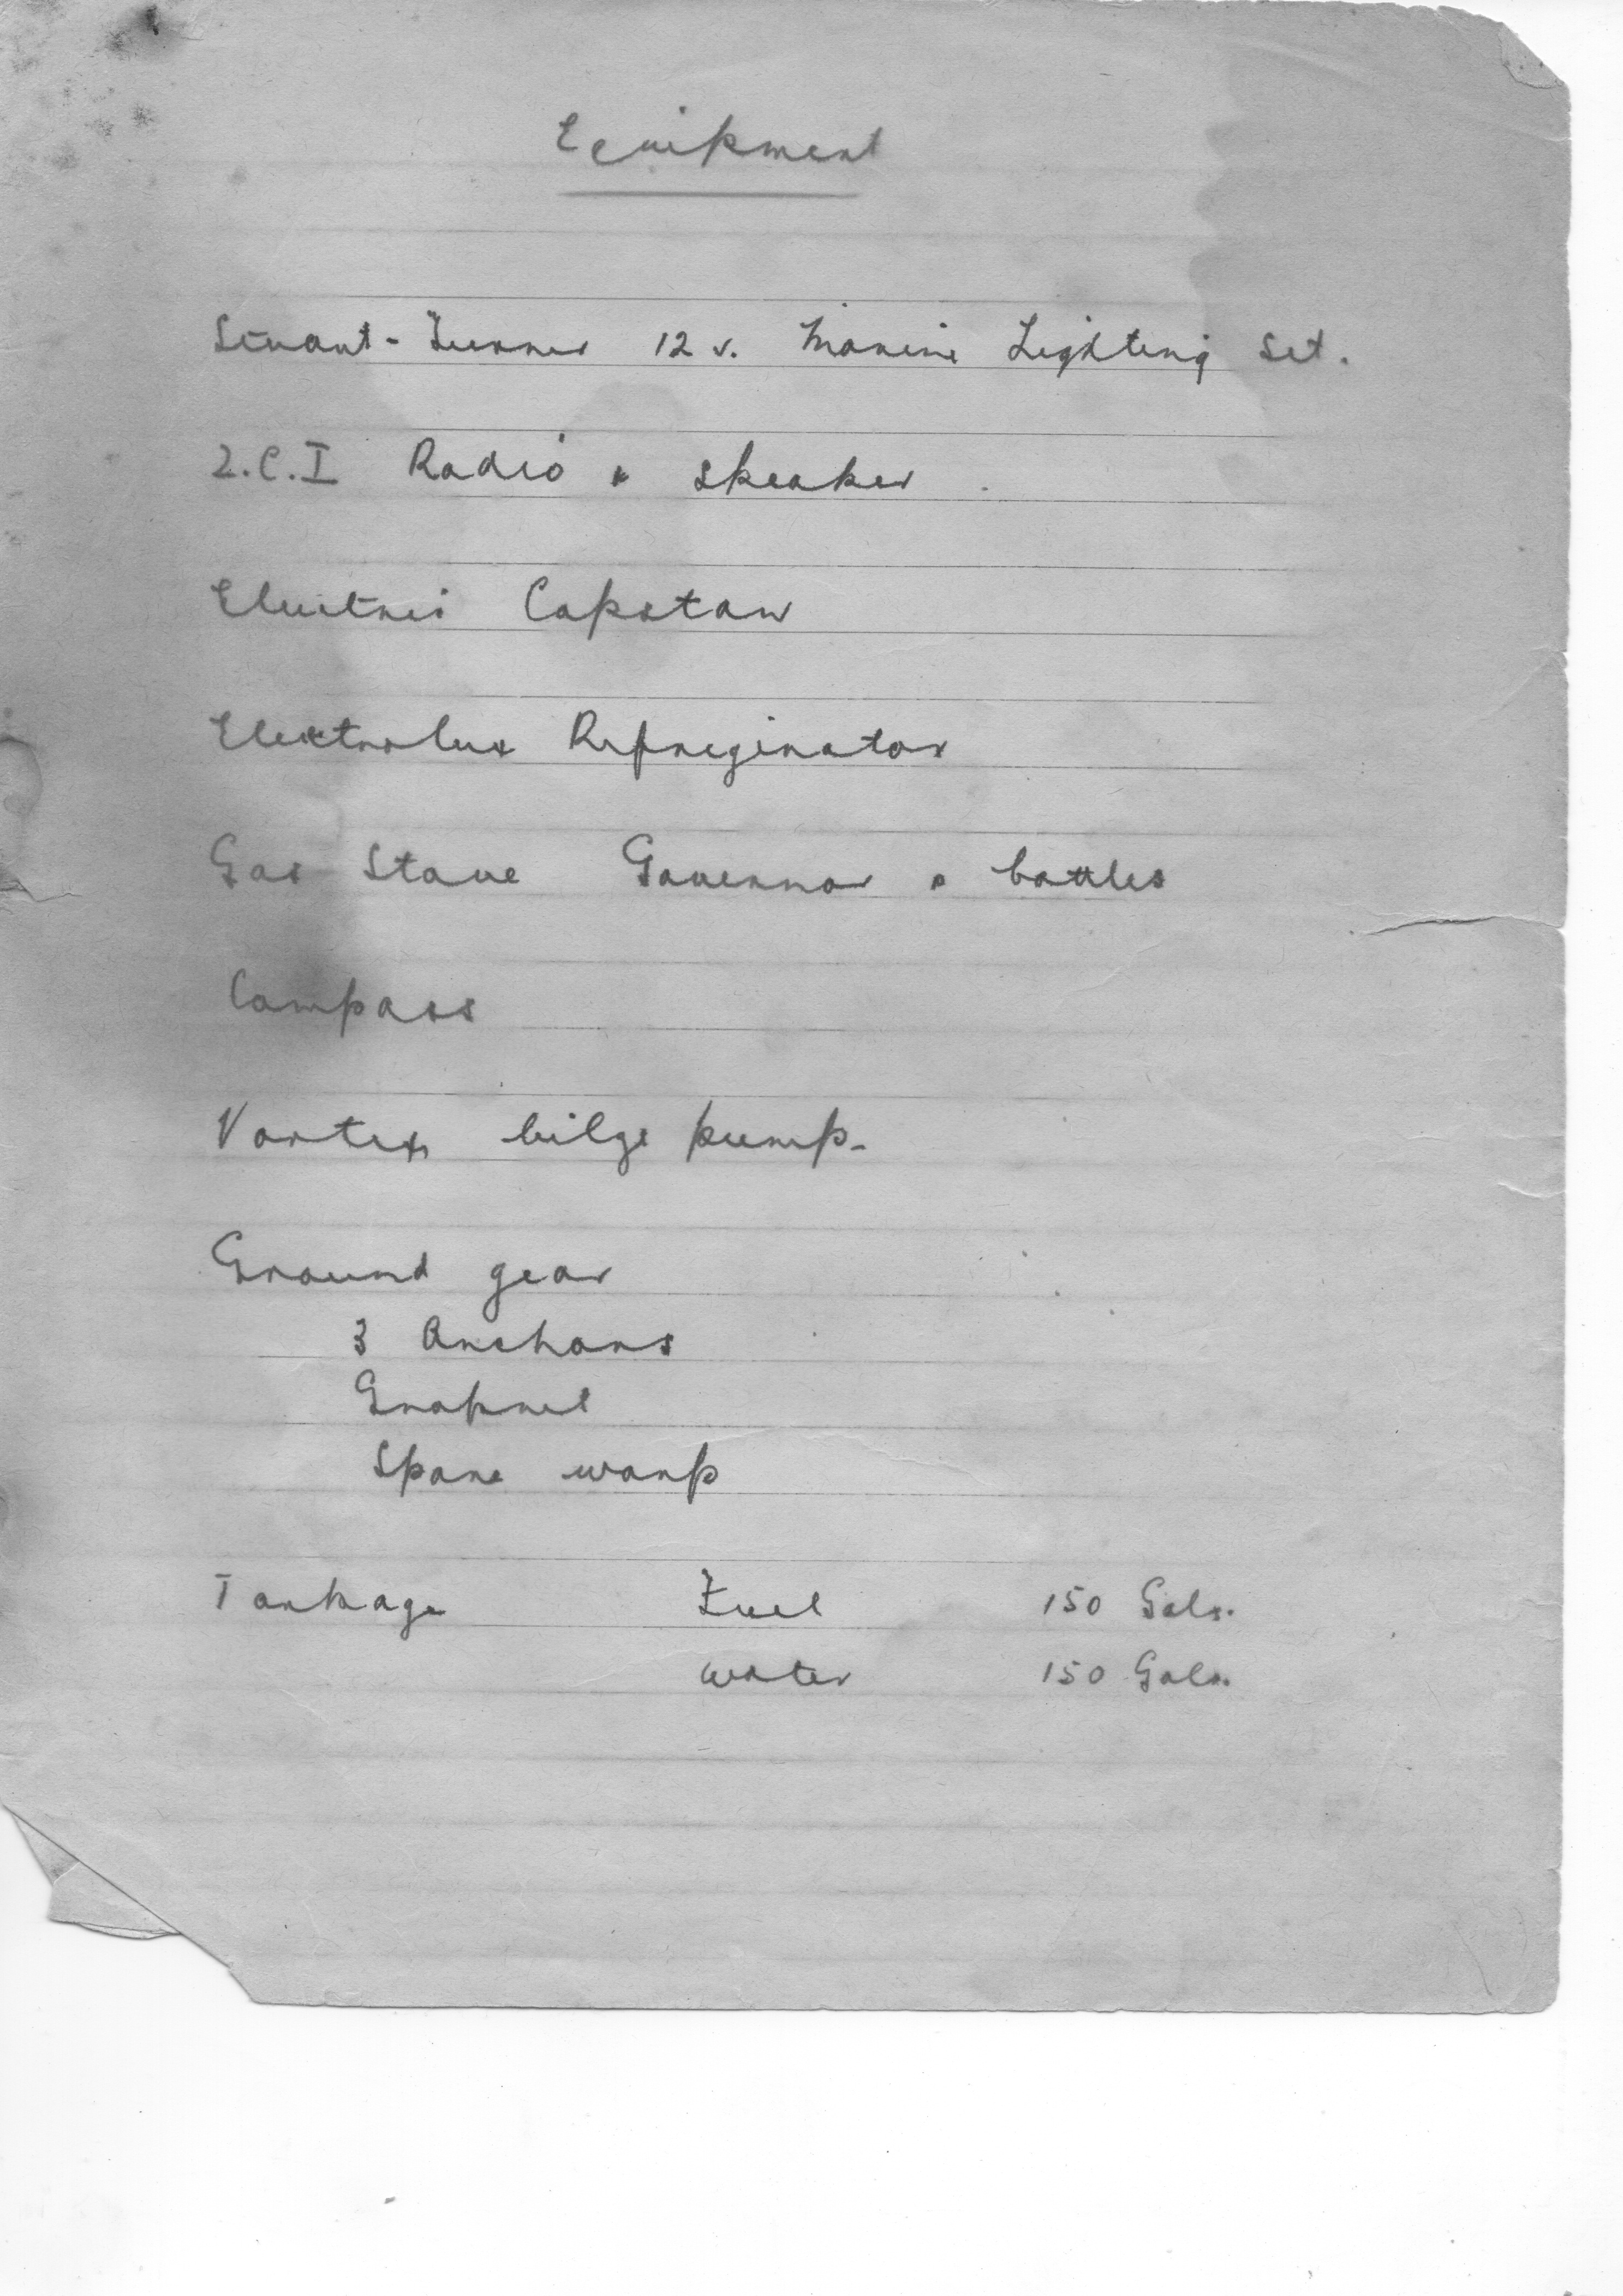 Equipment
Stuart-Turner 12 v. Marine Lighting Set.
Z.C.I Radio & Speaker
Electric Capstan
Electrolux Refregirator
Gas Stove Governor & bottles
Compass
Vortex bilge pump.
Ground gear
3 Anchors
Grapnel
Spare warp
Tankage Fuel 150 Gals.
water 150 Gals.